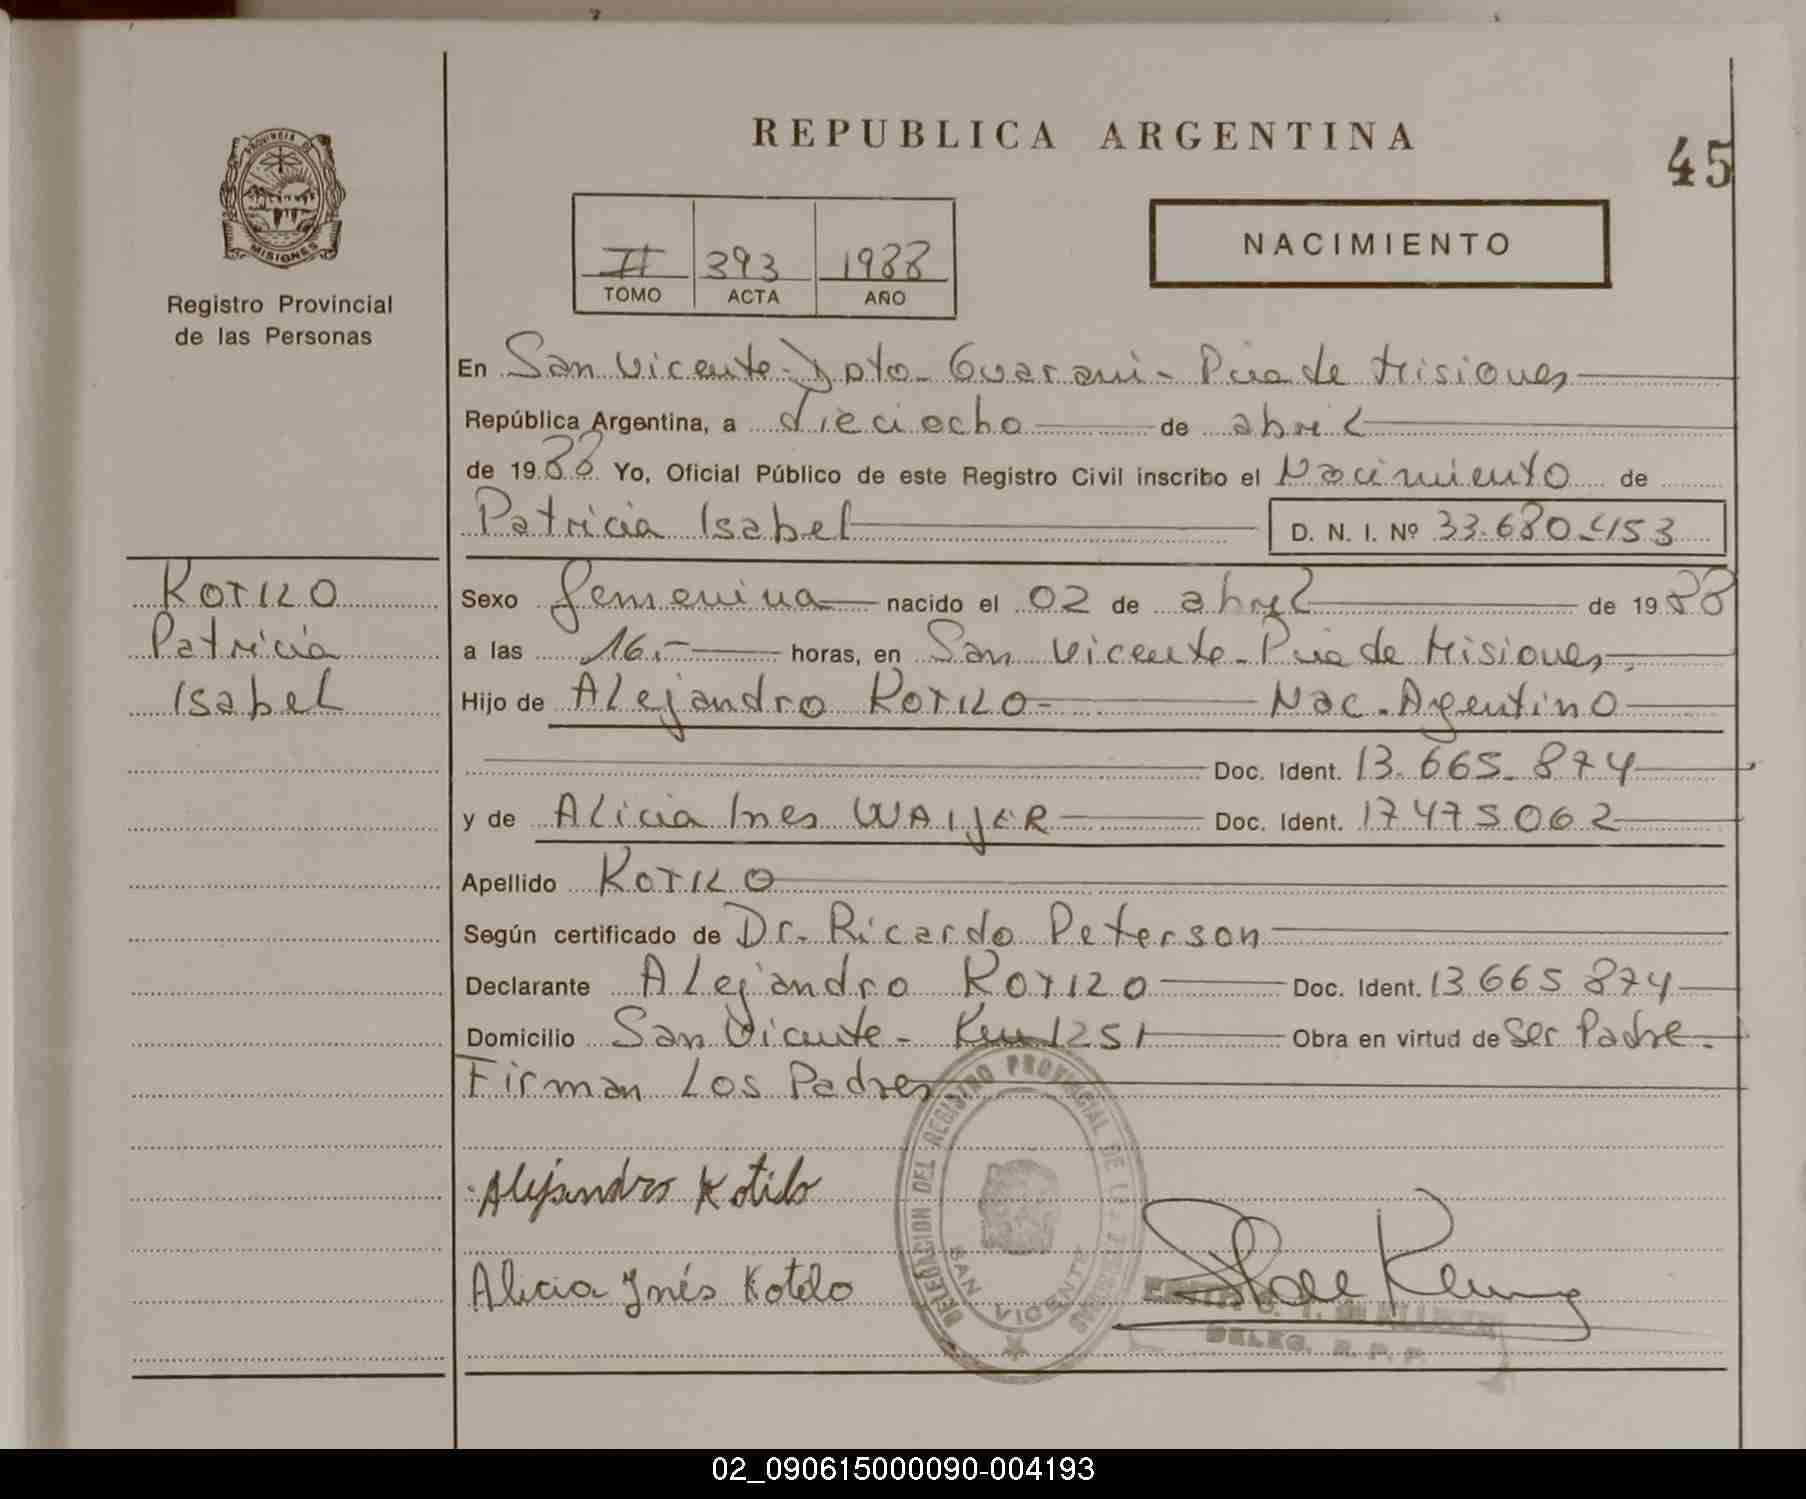 REPUBLICA ARGENTINA
45
PROVINCIA DE
MISIONES
Registro Provincial
de las Personas
II 393 1988
TOMO ACTA AÑO
NACIMIENTO
En San Vicente - Dpto - Guarani - Pcia de Misiones
República Argentina, a dieciocho de abril
de 1988 Yo, Oficial Público de este Registro Civil inscribo el Nacimiento de
Patricia Isabel D. N. I. Nº 33.680.453
KOTILO
Patricia
Isabel
Sexo femenina nacido el 02 de abril de 1988
a las 16.- horas, en San Vicente - Pcia de Misiones
Hijo de Alejandro KOTILO - Nac. Argentino
Doc. Ident. 13.665.874
y de Alicia Ines WAIJER Doc. Ident. 17475062
Apellido KOTILO
Según certificado de Dr. Ricardo Peterson
Declarante Alejandro KOTILO Doc. Ident. 13665874
Domicilio San Vicente - Km 1251 Obra en virtud de ser Padre.
Firman Los Padres
DELEGACION DEL REGISTRO PROVINCIAL DE LAS PERSONAS
SAN VICENTE
Alejandro Kotilo
Alicia Inés Kotilo
DELEG. R. P. P.
02_090615000090-004193